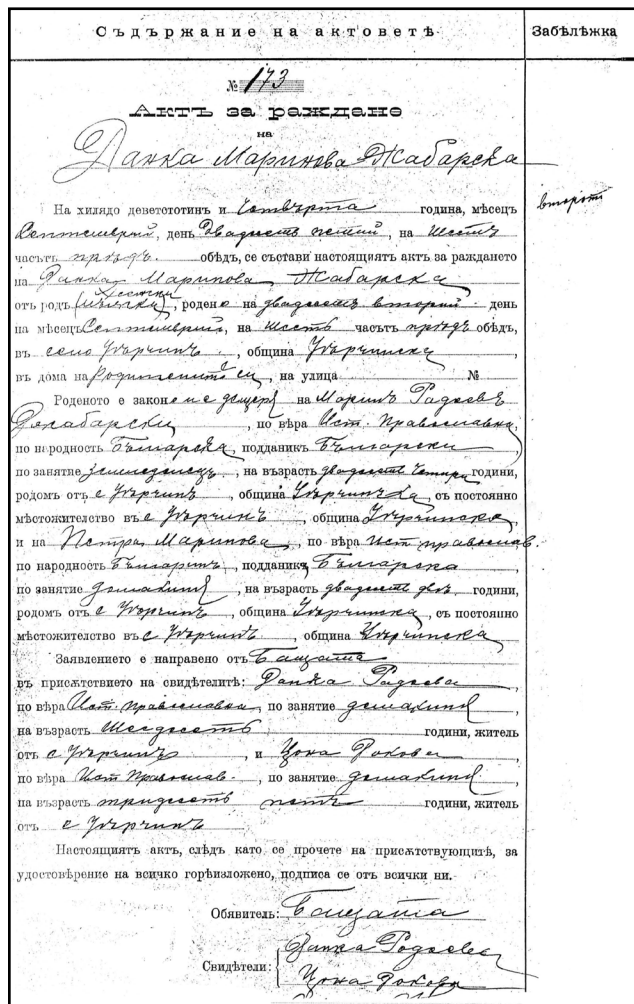 Съдържание на актоветѣ
Забѣлѣжка
№ 173
Актъ за раждане
на
Данка Маринова Жабарска
втората
На хилядо деветстотинъ и Четвърта година, мѣсецъ
Септемврий, день Двадесеть петий, на Шесть
часътъ прѣдъ. обѣдъ, се състави настоящиятъ актъ за раждането
на Данка Маринова Жабарска
отъ родъ (женски), родено на двадесеть вторий день
на мѣсецъ Септемврий, на шесть часътъ прѣдъ обѣдъ,
въ село Угърчинъ, община Угърчинска,
въ дома на Родителитѣ си, на улица №
Роденото е законно дъщеря на Маринъ Радоевъ
Жабарски, по вѣра Ист. Православна,
по народность Българска, подданикъ Български,
по занятие земледелецъ, на възрасть двадесеть четири години,
родомъ отъ с Угърчинъ, община Угърчинска, съ постоянно
мѣстожителство въ с Угърчинъ, община Угърчинска,
и на Петра Маринова, по вѣра Ист православ.
по народность Българинъ, подданикъ Българска
по занятие домакиня, на възрасть двадесеть двѣ години,
родомъ отъ с Угърчинъ, община Угърчинска, съ постоянно
мѣстожителство въ с Угърчинъ, община Угърчинска,
Заявлението е направено отъ Бащата
въ присѫтствието на свидѣтелитѣ: Данка Радоева,
по вѣра Ист. Православна, по занятие домакиня,
на възрасть Шесдесеть години, жителъ
отъ с Угърчинъ, и Цона Докова,
по вѣра Ист Православ., по занятие домакиня,
на възрасть тридесеть петь години, жителъ
отъ с Угърчинъ
Настоящиятъ актъ, слѣдъ като се прочете на присѫтствующитѣ, за
удостовѣрение на всичко горѣизложено, подписа се отъ всички ни.
Обявителъ: Бащата
Данка Радоева
Свидѣтели:
Цона Докова